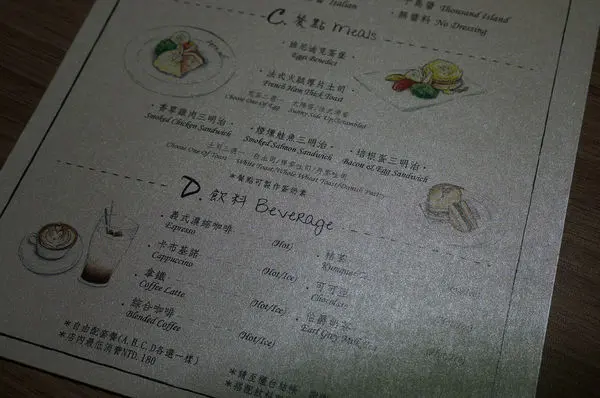 Italian
千島醬 Thousand Island
無醬料 No Dressing
C. 餐點 Meals
· 班尼迪克蛋堡 ·
Eggs Benedict
· 法式火腿厚片土司 ·
French Ham Thick Toast
Choose One Of Egg
Sunny Side Up/Scrambled
· 香草雞肉三明治 ·
Smoked Chicken Sandwich
· 煙燻鮭魚三明治 ·
Smoked Salmon Sandwich
· 培根蛋三明治 ·
Bacon & Egg Sandwich
Choose One Of Toast
White Toast/Whole Wheat Toast/Danish Pastry
*餐點可製作蛋奶素
D. 飲料 Beverage
· 義式濃縮咖啡 (Hot)
Espresso
· 卡布基諾 (Hot/Ice)
Cappuccino
· 拿鐵 (Hot/Ice)
Coffee Latte
· 綜合咖啡 (Hot/Ice)
Blended Coffee
· 桔茶
Kumquat
· 可可亞
Chocolate
· 伯爵奶茶
Earl Grey Milk
*自由配套餐(A,B,C,D各選一樣)
*店內最低消費NTD.180
*請至櫃台結帳